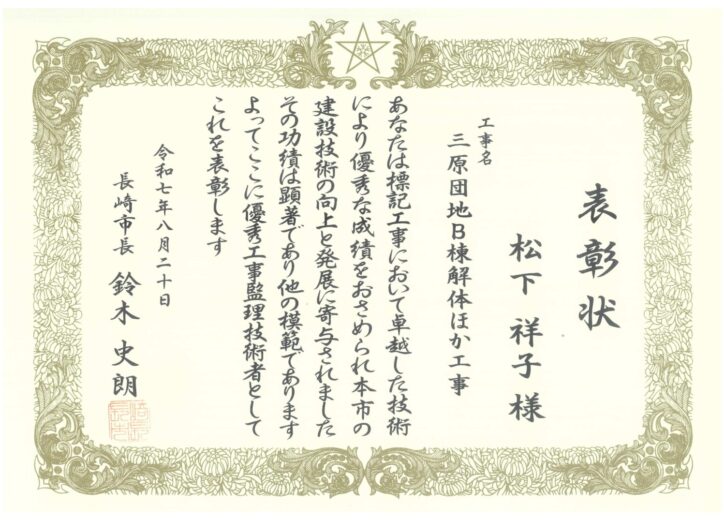 表彰状
松下祥子様
工事名
三原団地B棟解体ほか工事
あなたは標記工事において卓越した技術
により優秀な成績をおさめられ本市の
建設技術の向上と発展に寄与されました
その功績は顕著であり他の模範であります
よってここに優秀工事監理技術者として
これを表彰します
令和七年八月二十日
長崎市長 鈴木史朗